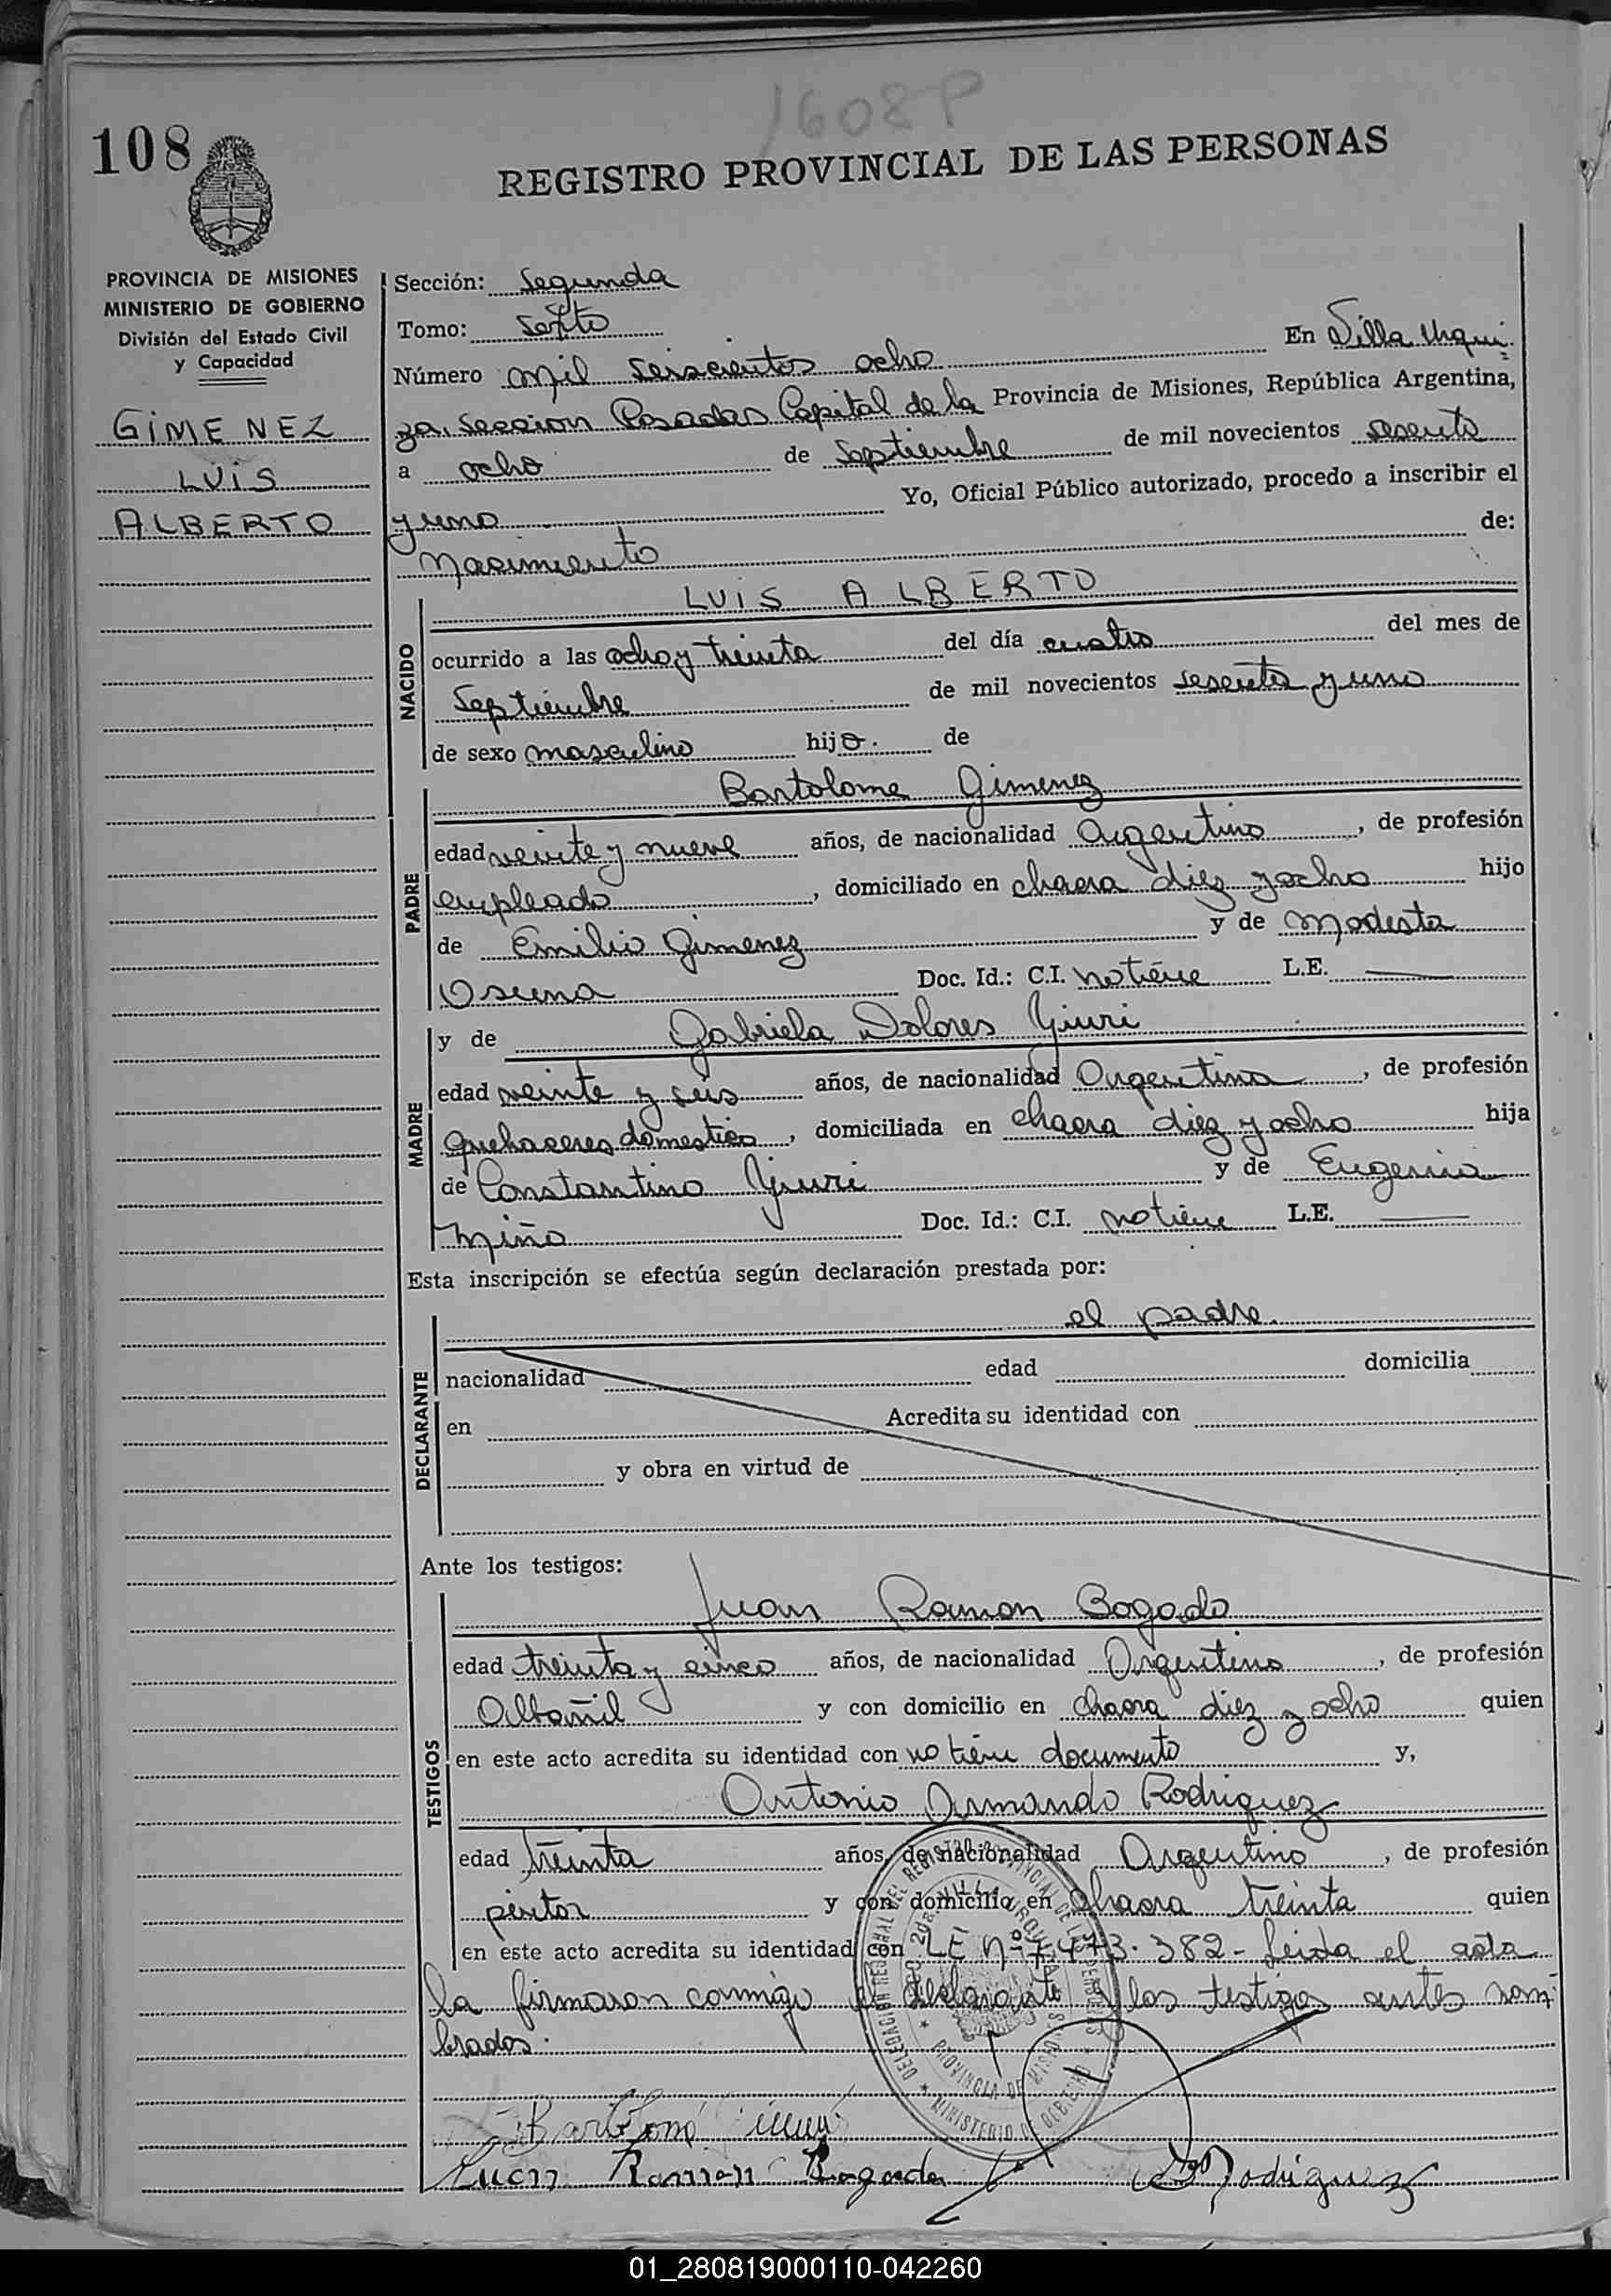 1608P
108
REGISTRO PROVINCIAL DE LAS PERSONAS
PROVINCIA DE MISIONES
MINISTERIO DE GOBIERNO
División del Estado Civil
y Capacidad
GIMENEZ
LUIS
ALBERTO
Sección: Segunda
Tomo: Sexto
Número mil seiscientos ocho En Villa Urqui
za, Seccion Posadas Capital de la Provincia de Misiones, República Argentina,
a ocho de Septiembre de mil novecientos sesenta
y uno Yo, Oficial Público autorizado, procedo a inscribir el
Nacimiento de:
LUIS ALBERTO
NACIDO
ocurrido a las ocho y treinta del día cuatro del mes de
Septiembre de mil novecientos sesenta y uno
de sexo masculino hijo. de
Bartolome Gimenez
PADRE
edad veinte y nueve años, de nacionalidad Argentino, de profesión
empleado, domiciliado en chacra diez y ocho hijo
de Emilio Gimenez y de Modesta
Osuna Doc. Id.: C.I. no tiene L.E. —
y de Gabriela Dolores Yiuri
MADRE
edad veinte y seis años, de nacionalidad Argentina, de profesión
quehaceres domestico, domiciliada en chacra diez y ocho hija
de Constantino Yiuri y de Eugenia
Miño Doc. Id.: C.I. no tiene L.E. —
Esta inscripción se efectúa según declaración prestada por:
el padre.
DECLARANTE
nacionalidad edad domicilia
en Acredita su identidad con
y obra en virtud de
Ante los testigos:
Juan Ramon Bogado
TESTIGOS
edad treinta y cinco años, de nacionalidad Argentino, de profesión
Albañil y con domicilio en chacra diez y ocho quien
en este acto acredita su identidad con no tiene documento y,
Antonio Armando Rodriguez
edad treinta años, de nacionalidad Argentino, de profesión
pintor y con domicilia en chacra treinta quien
en este acto acredita su identidad con LE Nº 7.473.382 - Leida el acta
la firmaron conmigo el declarante y los testigos antes nom
brados.
DELEGACION REGIONAL DEL REGISTRO PROVINCIAL DE LAS PERSONAS
VILLA URQUIZA
PROVINCIA DE MISIONES
MINISTERIO DE GOBIERNO
Bartolomé
Juan Ramon Bogado
Rodriguez
01_280819000110-042260